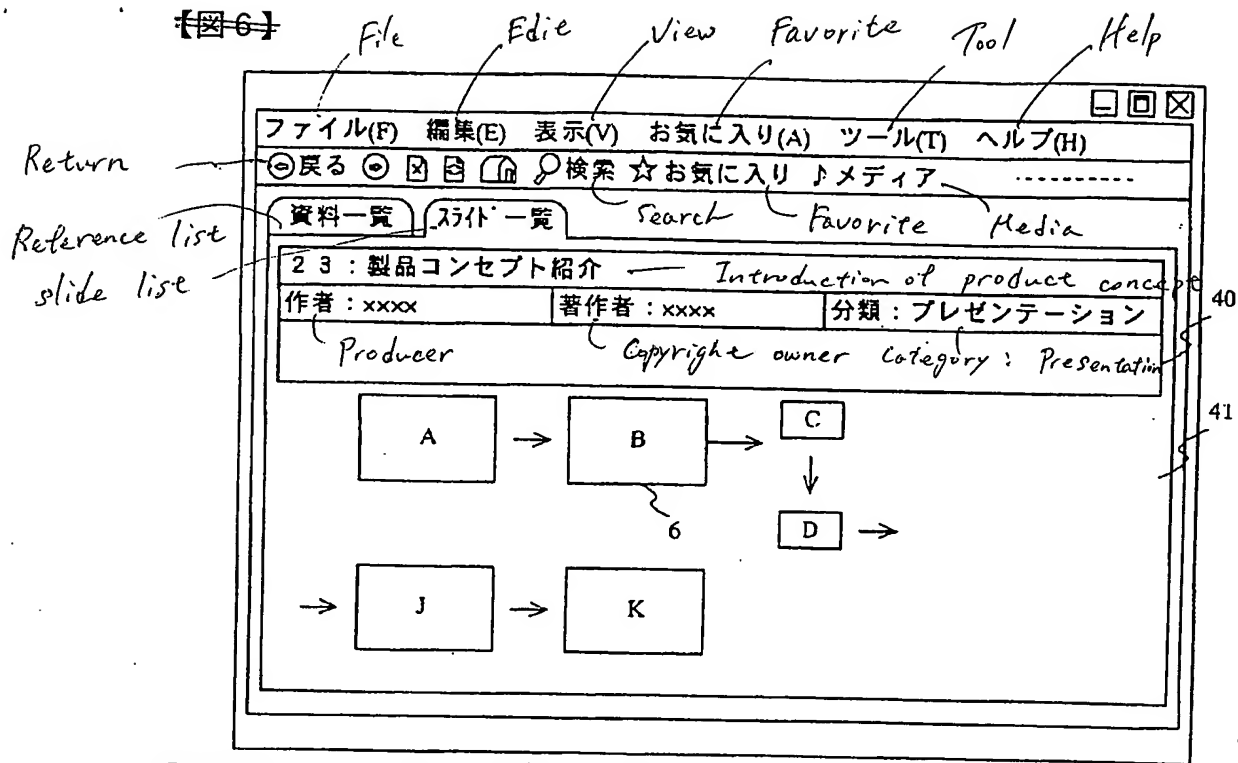 【図6】
File Edit View Favorite Tool Help
ファイル(F) 編集(E) 表示(V) お気に入り(A) ツール(T) ヘルプ(H)
Return
戻る 検索 ☆お気に入り ♪メディア
Search Favorite Media
Reference list
slide list
資料一覧 スライド一覧
23:製品コンセプト紹介 Introduction of product concept
40
作者:xxxx 著作者:xxxx 分類:プレゼンテーション
Producer Copyright owner Category: Presentation
41
A B C
6
D
J K